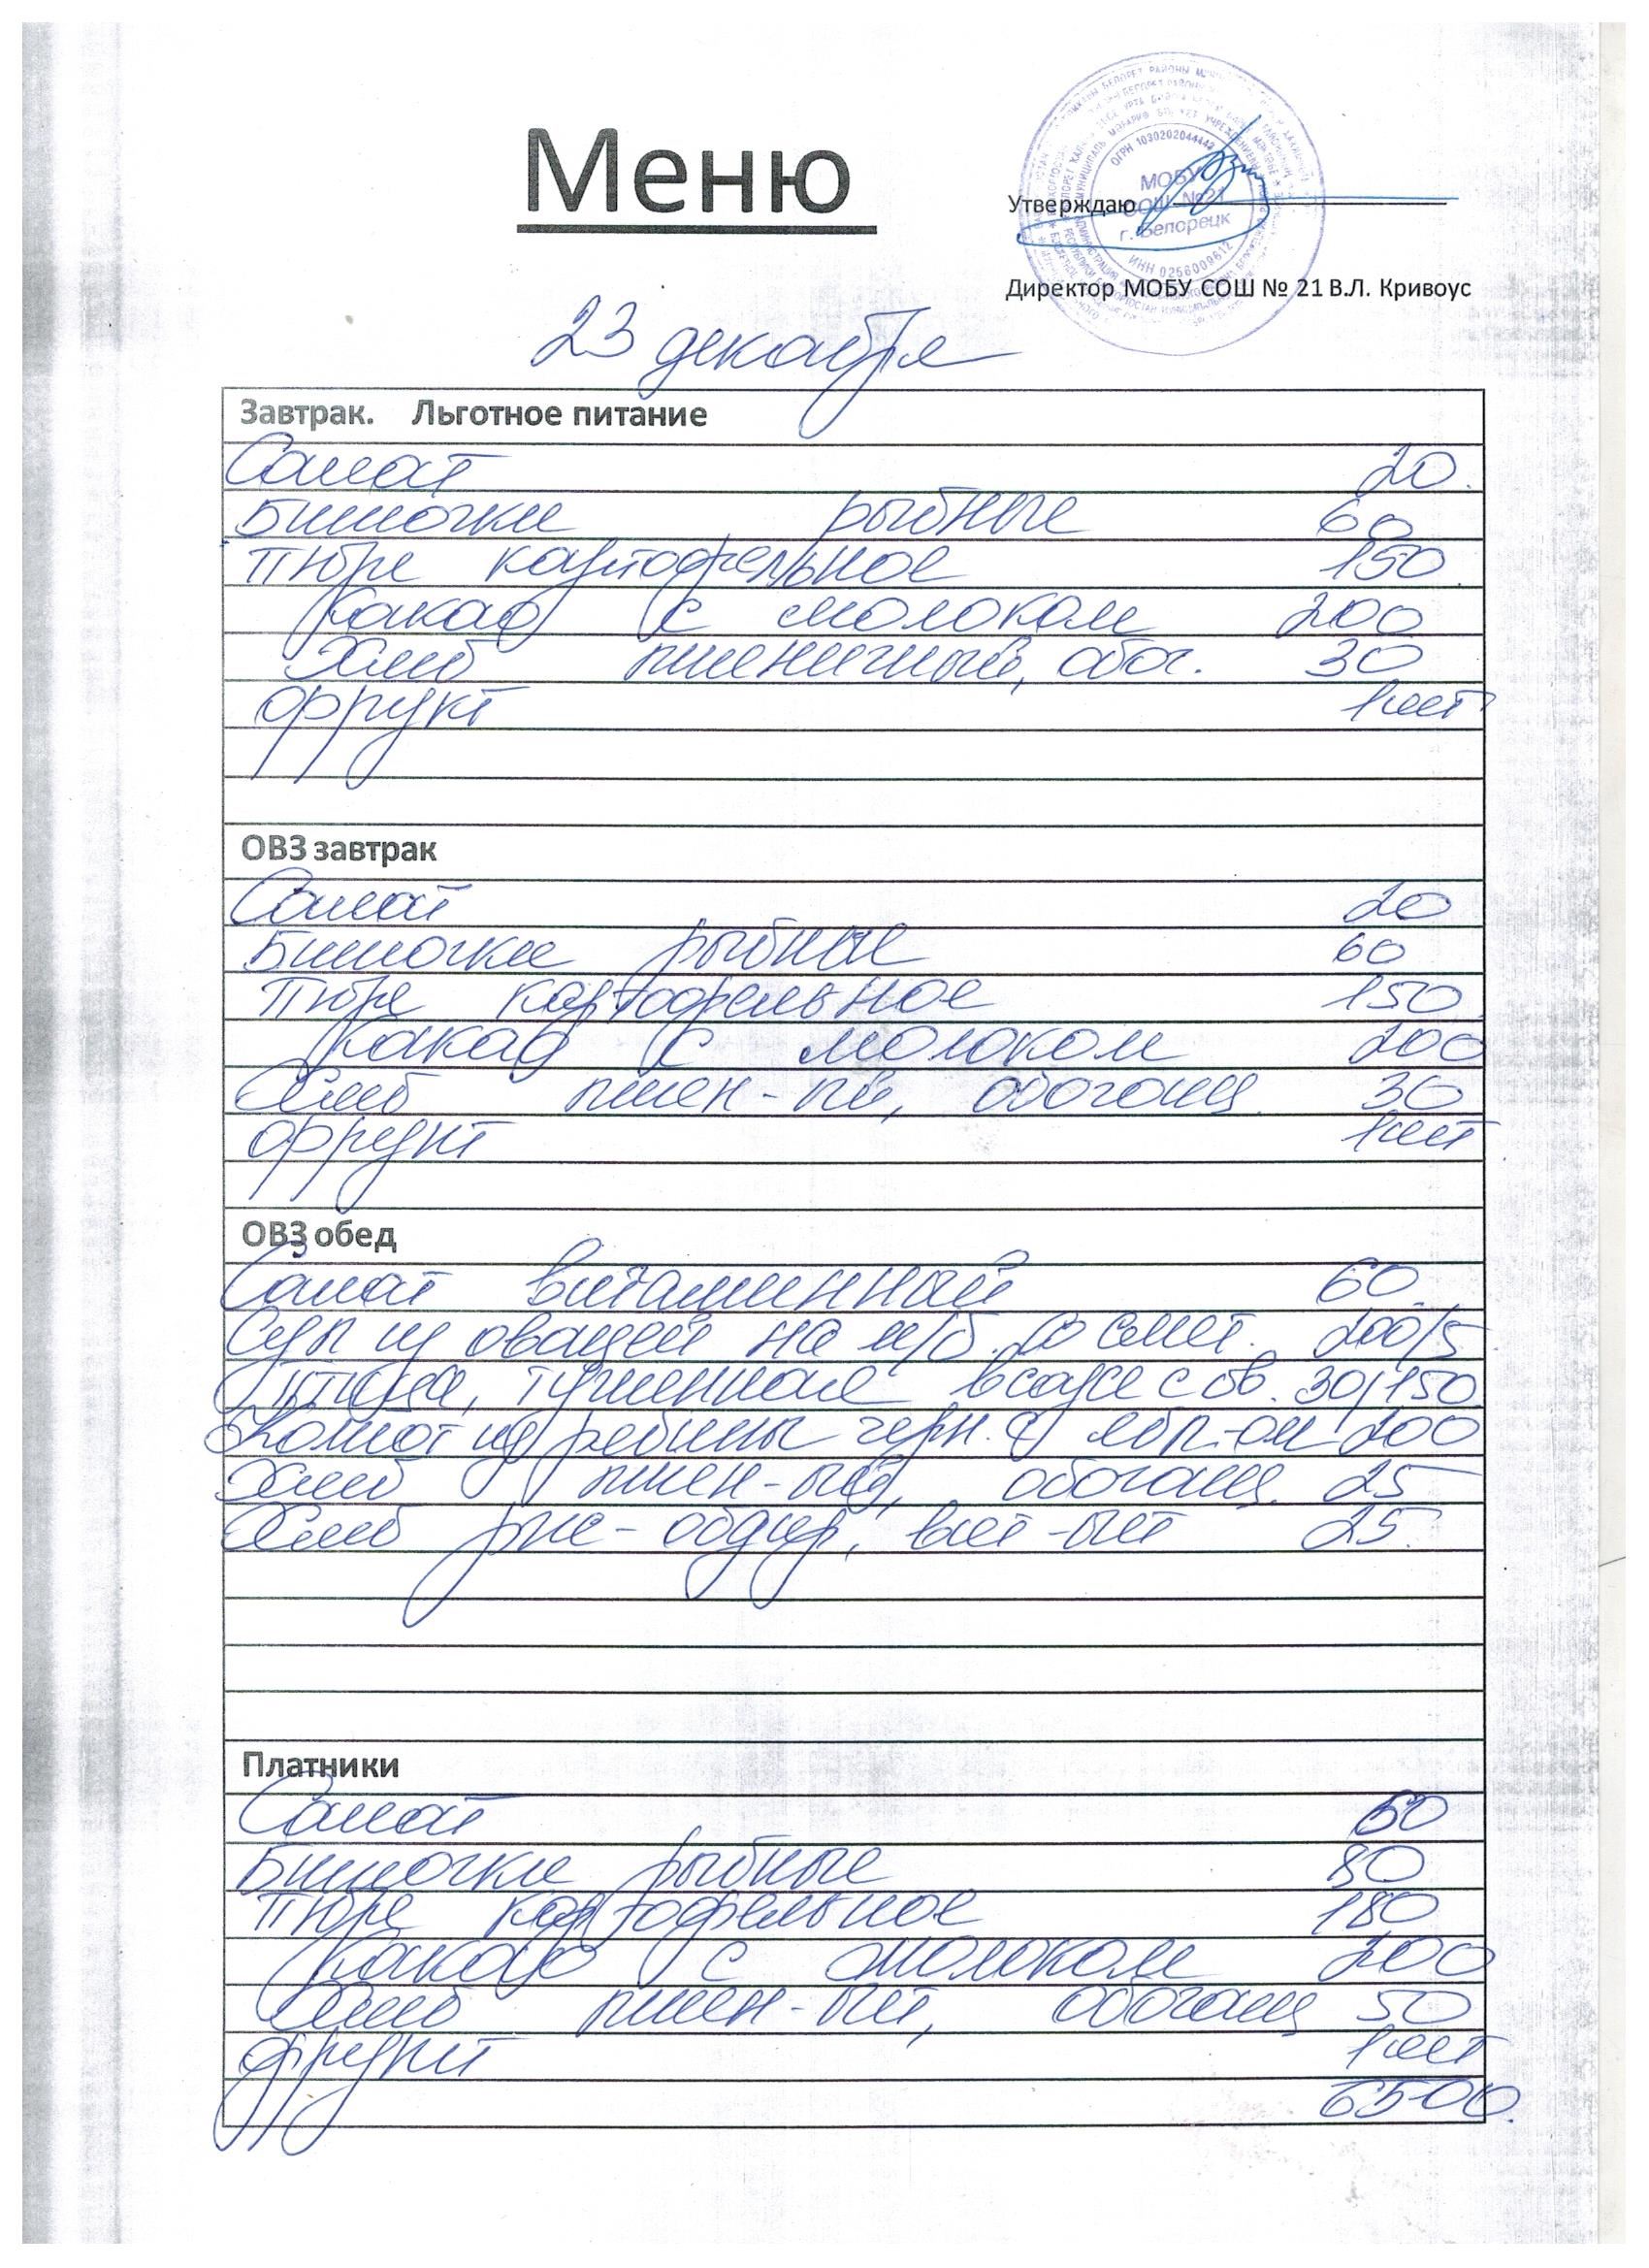 Меню
МОБУ
СОШ №21
г. Белорецк
ОГРН 1030202044442
ИНН 0256009612
Утверждаю
Директор МОБУ СОШ № 21 В.Л. Кривоус
23 декабря
Завтрак. Льготное питание
Салат 20.
Биточки рыбные 60
Пюре картофельное 150.
Какао с молоком 200
Хлеб пшеничный, обог. 30
фрукт 1шт
ОВЗ завтрак
Салат 20
Биточки рыбные 60
Пюре картофельное 150
Какао с молоком 200
Хлеб пшен-ый, обогащ. 30
фрукт 1шт
ОВЗ обед
Салат витаминный 60.
Суп из овощей на м/б. со смет. 200/5
Птица, тушенная в соусе с ов. 30/150
Компот из рябины черн. с ябл-ом 200
Хлеб пшен-ый, обогащ. 25
Хлеб рж-обдир, 25.
Платники
Салат 60
Биточки рыбные 80
Пюре картофельное 180
Какао с молоком 200
Хлеб пшен-ый, обогащ 50
фрукт 1шт
65-00.